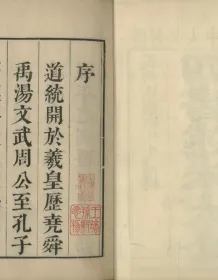 序
道統開於羲皇歷堯舜
禹湯文武周公至孔子